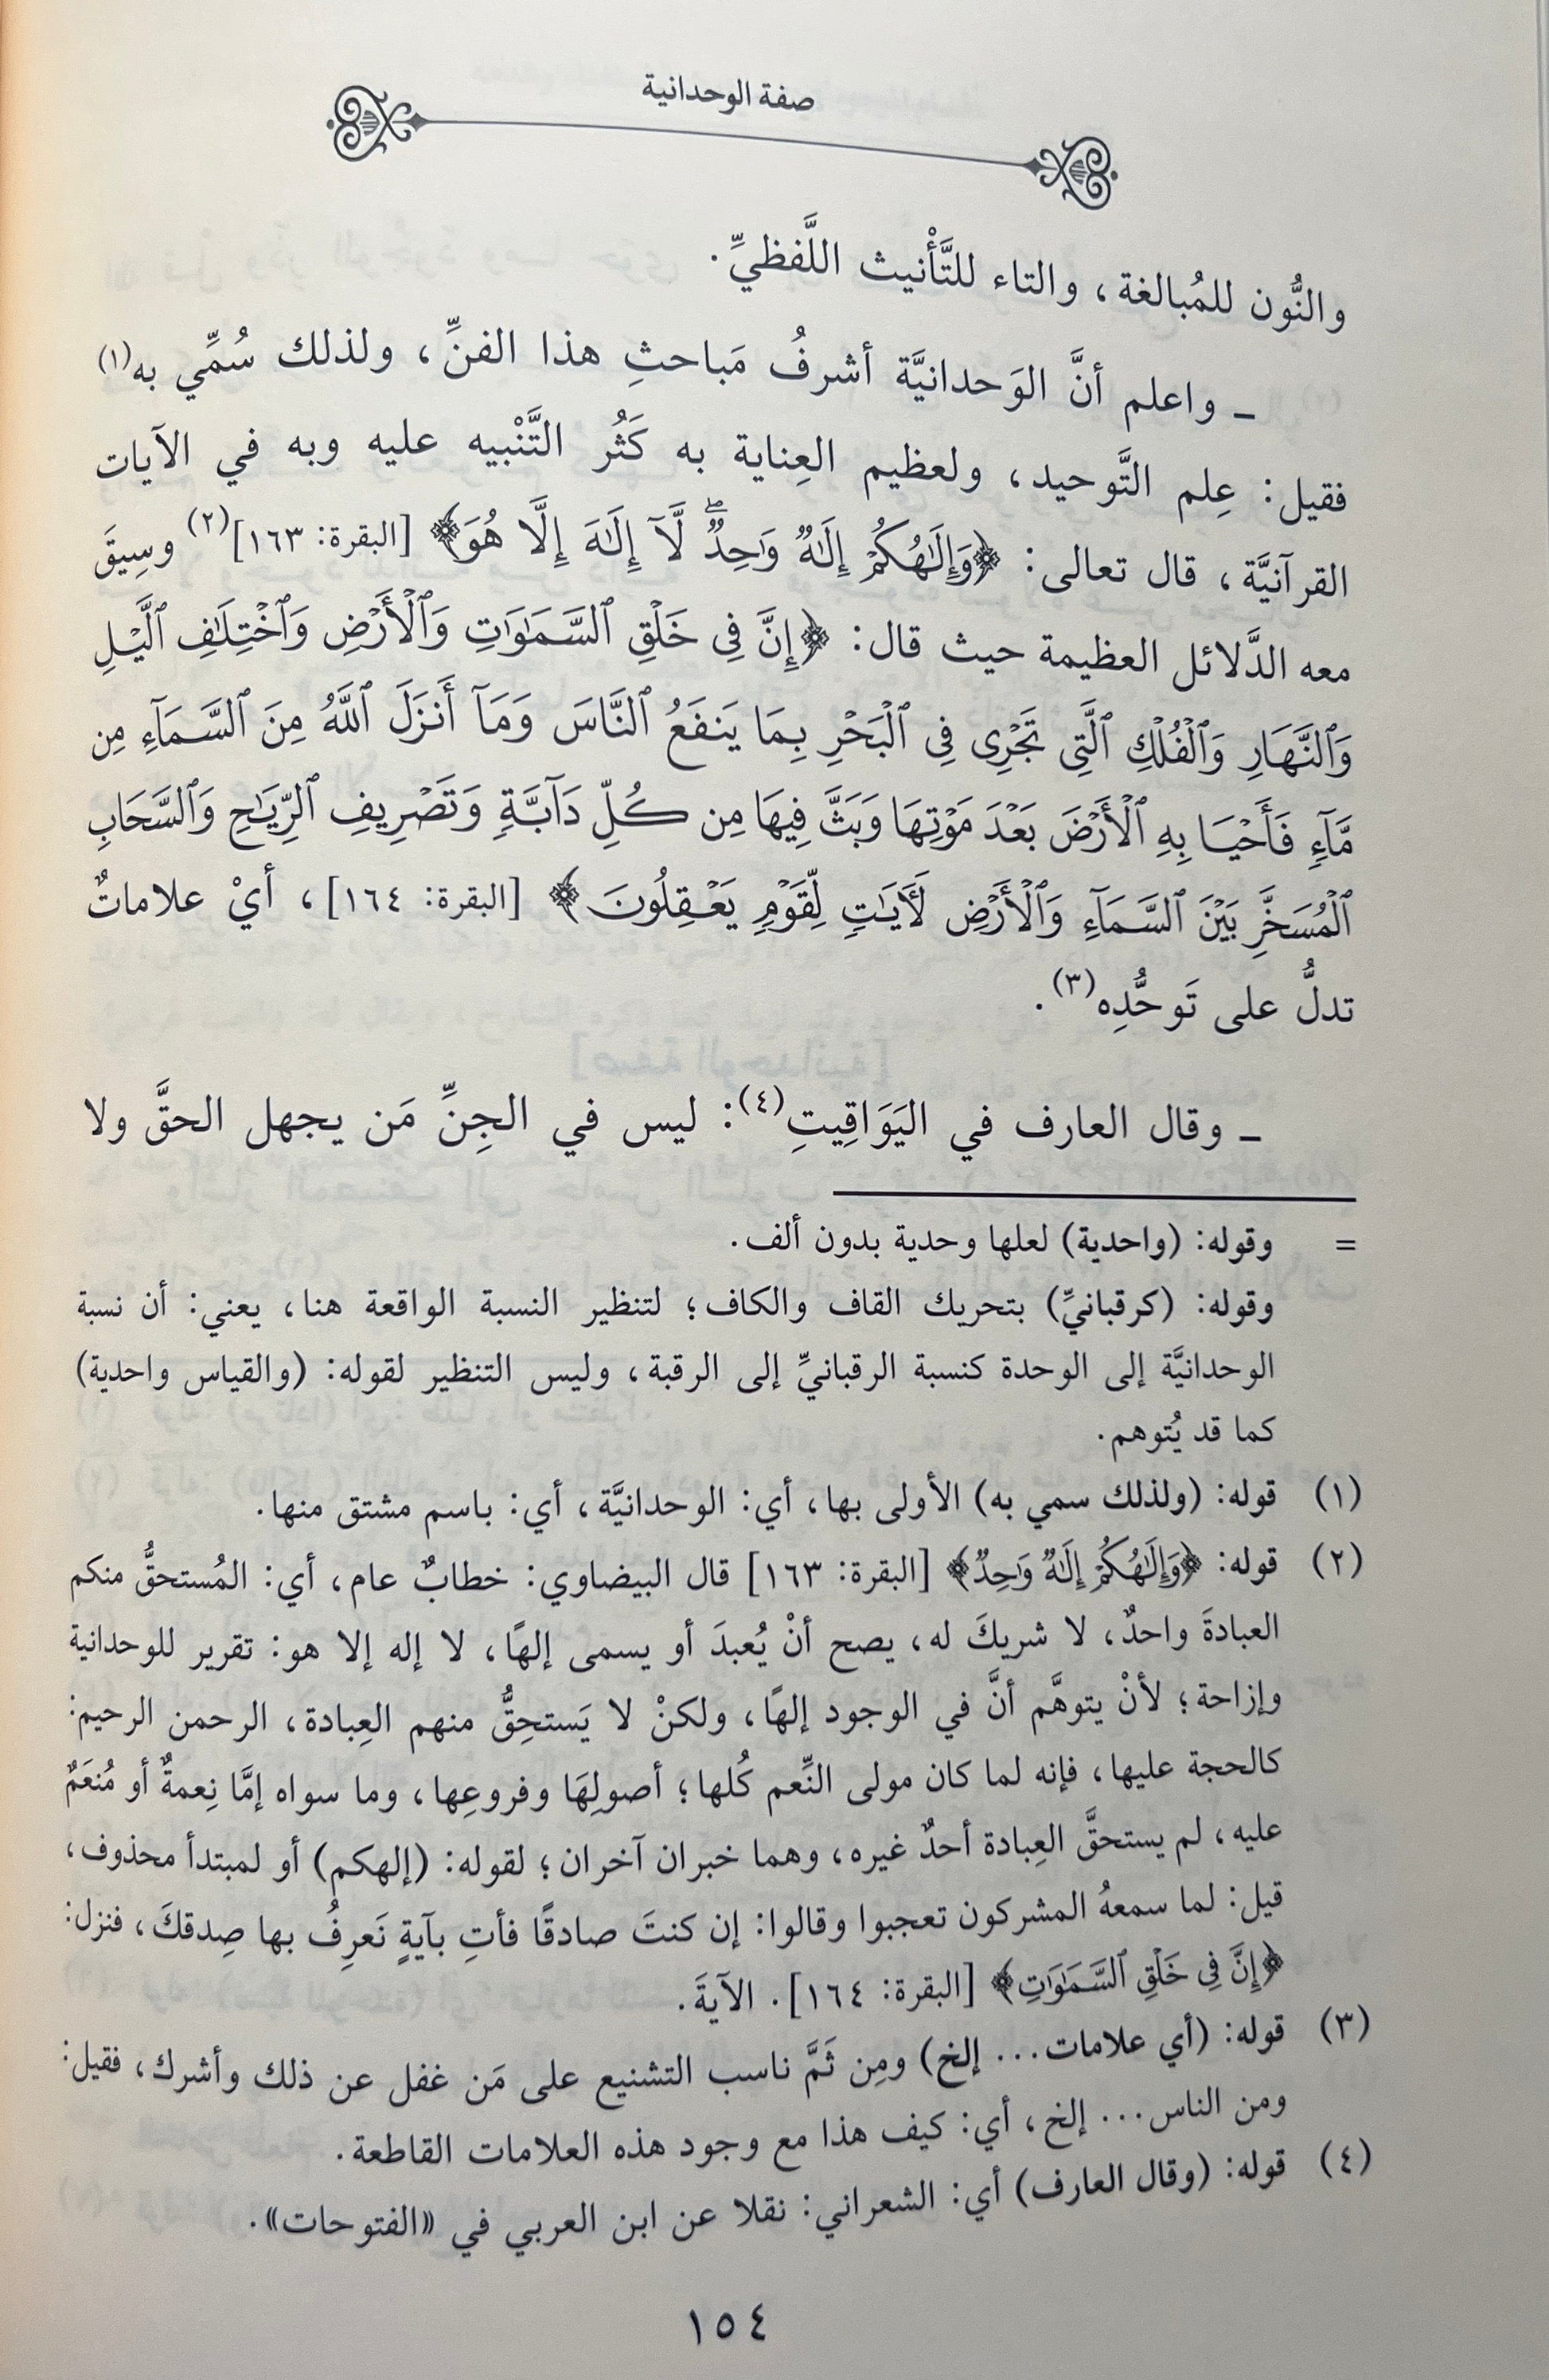 صفة الوحدانية
والنُّون للمُبالغة، والتاء للتَّأْنيث اللَّفظيِّ.
ـ واعلم أنَّ الوَحدانيَّة أشرفُ مَباحثِ هذا الفنِّ، ولذلك سُمِّي به(١)
فقيل: عِلم التَّوحيد، ولعظيم العِناية به كَثُر التَّنْبيه عليه وبه في الآيات
القرآنيَّة، قال تعالى: ﴿وَإِلَٰهُكُمۡ إِلَٰهٞ وَٰحِدٞۖ لَّآ إِلَٰهَ إِلَّا هُوَ﴾ [البقرة: ١٦٣](٢) وسِيقَ
معه الدَّلائل العظيمة حيث قال: ﴿إِنَّ فِي خَلۡقِ ٱلسَّمَٰوَٰتِ وَٱلۡأَرۡضِ وَٱخۡتِلَٰفِ ٱلَّيۡلِ
وَٱلنَّهَارِ وَٱلۡفُلۡكِ ٱلَّتِي تَجۡرِي فِي ٱلۡبَحۡرِ بِمَا يَنفَعُ ٱلنَّاسَ وَمَآ أَنزَلَ ٱللَّهُ مِنَ ٱلسَّمَآءِ مِن
مَّآءٖ فَأَحۡيَا بِهِ ٱلۡأَرۡضَ بَعۡدَ مَوۡتِهَا وَبَثَّ فِيهَا مِن كُلِّ دَآبَّةٖ وَتَصۡرِيفِ ٱلرِّيَٰحِ وَٱلسَّحَابِ
ٱلۡمُسَخَّرِ بَيۡنَ ٱلسَّمَآءِ وَٱلۡأَرۡضِ لَأٓيَٰتٖ لِّقَوۡمٖ يَعۡقِلُونَ﴾ [البقرة: ١٦٤]، أيْ علاماتٌ
تدلُّ على تَوحُّدِه(٣).
ـ وقال العارف في اليَوَاقِيتِ(٤): ليس في الجِنِّ مَن يجهل الحقَّ ولا
= وقوله: (واحدية) لعلها وحدية بدون ألف.
وقوله: (كرقبانيِّ) بتحريك القاف والكاف؛ لتنظير النسبة الواقعة هنا، يعني: أن نسبة
الوحدانيَّة إلى الوحدة كنسبة الرقبانيِّ إلى الرقبة، وليس التنظير لقوله: (والقياس واحدية)
كما قد يُتوهم.
(١) قوله: (ولذلك سمي به) الأولى بها، أي: الوحدانيَّة، أي: باسم مشتق منها.
(٢) قوله: ﴿وَإِلَٰهُكُمۡ إِلَٰهٞ وَٰحِدٞ﴾ [البقرة: ١٦٣] قال البيضاوي: خطابٌ عام، أي: المُستحقُّ منكم
العبادةَ واحدٌ، لا شريكَ له، يصح أنْ يُعبدَ أو يسمى إلهًا، لا إله إلا هو: تقرير للوحدانية
وإزاحة؛ لأنْ يتوهَّم أنَّ في الوجود إلهًا، ولكنْ لا يَستحِقُّ منهم العِبادة، الرحمن الرحيم:
كالحجة عليها، فإنه لما كان مولى النِّعم كُلها؛ أصولِهَا وفروعِها، وما سواه إمَّا نِعمةٌ أو مُنعَمٌ
عليه، لم يستحقَّ العِبادة أحدٌ غيره، وهما خبران آخران؛ لقوله: (إلهكم) أو لمبتدأ محذوف،
قيل: لما سمعهُ المشركون تعجبوا وقالوا: إن كنتَ صادقًا فأتِ بآيةٍ نَعرِفُ بها صِدقكَ، فنزل:
﴿إِنَّ فِي خَلۡقِ ٱلسَّمَٰوَٰتِ﴾ [البقرة: ١٦٤]. الآيةَ.
(٣) قوله: (أي علامات... إلخ) ومِن ثَمَّ ناسب التشنيع على مَن غفل عن ذلك وأشرك، فقيل:
ومن الناس... إلخ، أي: كيف هذا مع وجود هذه العلامات القاطعة.
(٤) قوله: (وقال العارف) أي: الشعراني: نقلا عن ابن العربي في «الفتوحات».
١٥٤